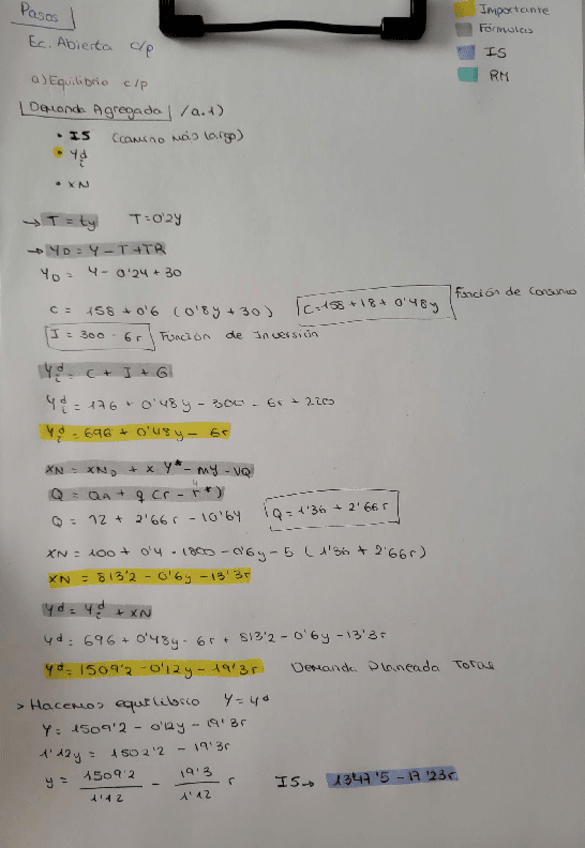 Pasos
Importante
Fórmulas
IS
RM
Ec. Abierta c/p
a) Equilibrio c/p
Demanda Agregada /a.1)
• IS (camino más largo)
• Ydi
• XN
→ T = ty T = 0'2y
→ YD = Y - T + TR
YD = Y - 0'2y + 30
C = 158 + 0'6 (0'8y + 30) C = 158 + 18 + 0'48y Función de Consumo
I = 300 - 6r Función de Inversión
Ydi = C + I + G
Ydi = 176 + 0'48y - 300 - 6r + 220
Ydi = 696 + 0'48y - 6r
XN = XN0 + x Y* - my - vQ
Q = QA + q (r - r*) 4
Q = 12 + 2'66r - 10'64 Q = 1'36 + 2'66r
XN = 100 + 0'4 · 1800 - 0'6y - 5 (1'36 + 2'66r)
XN = 813'2 - 0'6y - 13'3r
Yd = Ydi + XN
Yd = 696 + 0'48y - 6r + 813'2 - 0'6y - 13'3r
Yd = 1509'2 - 0'12y - 19'3r Demanda Planeada Total
> Hacemos equilibrio Y = Yd
Y = 1509'2 - 0'12y - 19'3r
1'12y = 1502'2 - 19'3r
y = 1509'2/1'12 - 19'3/1'12 r IS → 1347'5 - 17'23r